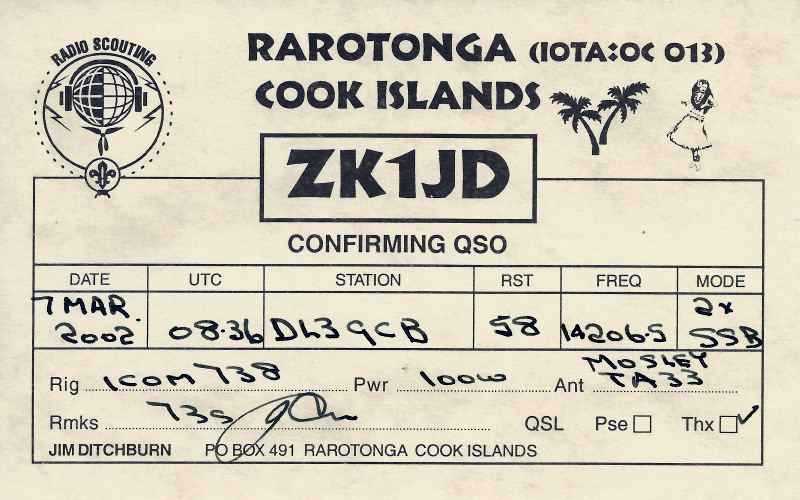 RADIO SCOUTING
RAROTONGA (IOTA:OC 013)
COOK ISLANDS
ZK1JD
CONFIRMING QSO
DATE UTC STATION RST FREQ MODE
7 MAR. 2002 08·36 DL3GCB 58 14206·5 2x SSB
Rig ICOM 738 Pwr 100W Ant MOSLEY TA33
Rmks 73s QSL Pse Thx ✓
JIM DITCHBURN PO BOX 491 RAROTONGA COOK ISLANDS